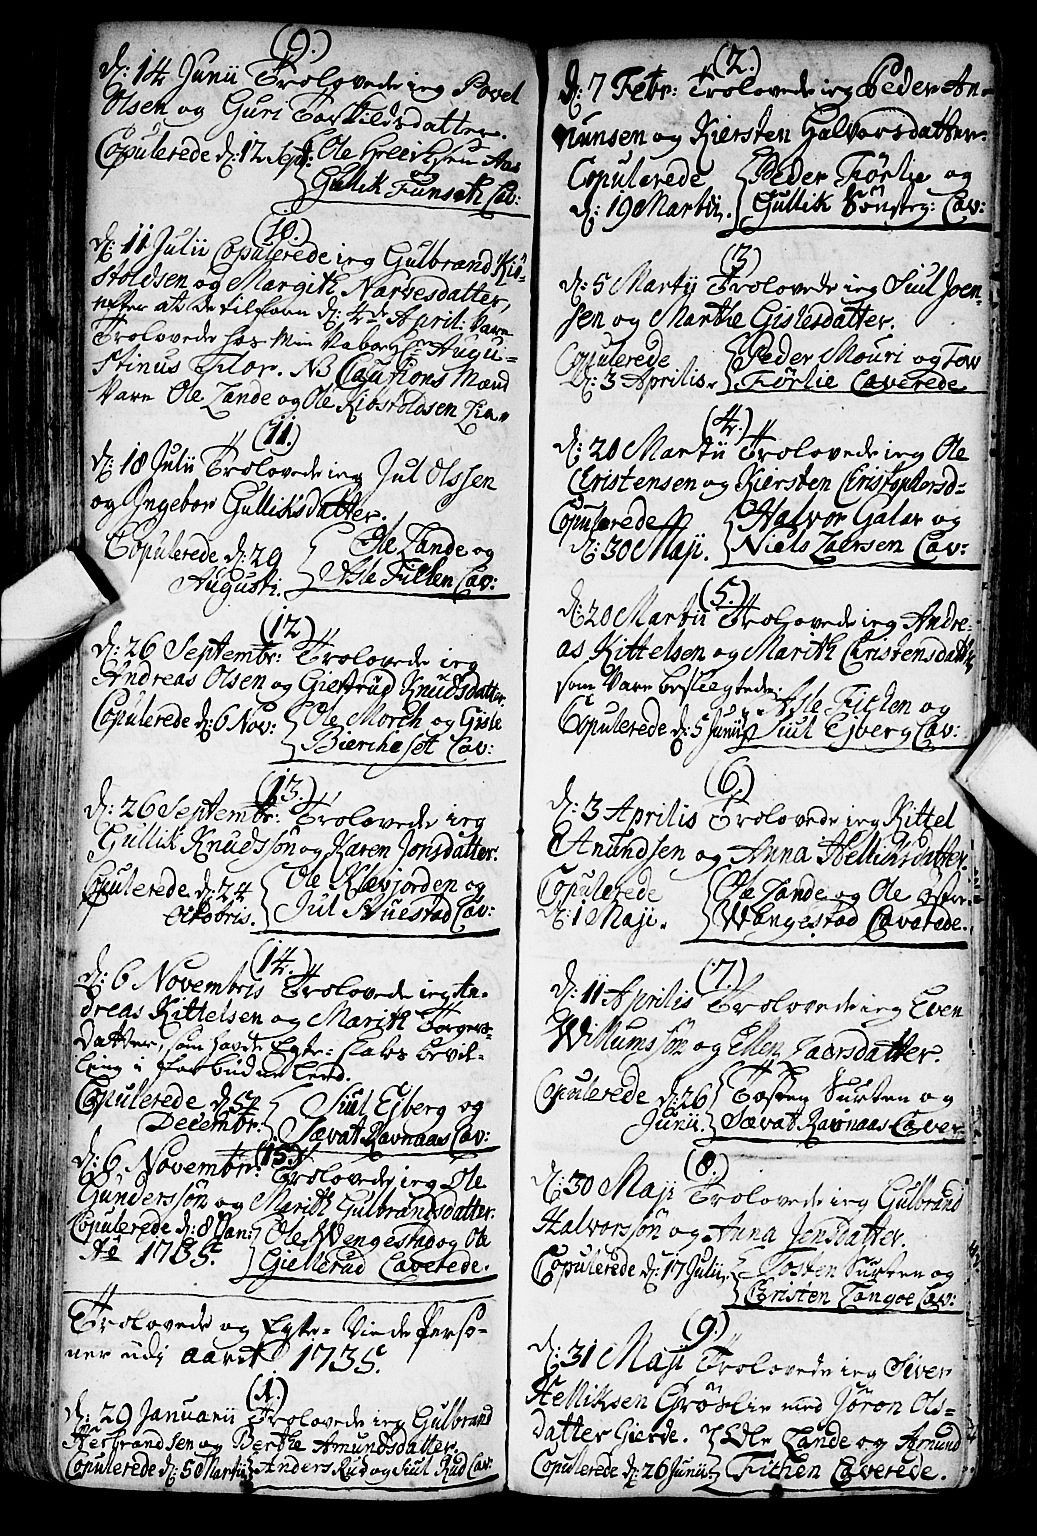 (9.)
d: 14 Junii Trolovede ieg Povel
Olsen og Guri Torkildsdatter.
Copulerede d: 12 Sept: Ole
Gullik Funseth Cav:
(10)
d: 11 Julii Copulerede ieg Gulbrand Kib-
stoldsen og Margith Narvesdatter,
efter at de tilforn d: 4de April: vare
Trolovede hos Min Nabo Hr Augu-
stinus Flor. NB Cautions Mænd
vare Ole Lande og Ole Kibstoldsen Lia.
(11.)
d: 18 Julii Trolovede ieg Jul Olssen
og Yngebor Gulliksdatter.
Copulerede d: 29 Ole Lande og
Augusti. Asle Fitken Cav:
(12)
d: 26 Septembr: Trolovede ieg
Andreas Olsen og Giertrud Knudsdatter.
Copulerede d: 6 Nov: Ole Morch og Gisle
Biercheset Cav:
(13.)
d: 26 Septembr: Trolovede ieg
Gullik Knudssøn og Karen Jonsdatter.
Copulerede d: 24 Ole Klevjorden og
Octobris. Jul Stuestad Cav:
(14.)
d: 6 Novembris Trolovede ieg An-
dreas Kittelsen og Marith Torgers-
datter, som havde Egte-skabs bevil-
ling i forbudne leed.
Copulerede d: Siul Ejberg og
Decembr: Sævat Ravnaas Cav:
(15.)
d: 6 Novembr: Trolovede ieg Ole
Gunderssøn og Marith Gulbrandsdatter.
Copulerede d: 8 Jan: Ole Wengestad og Ole
Aō 1735. Gjellerud Caverede.
Trolovede og Egte-Viede Perso-
ner udj aaret 1735.
(1.)
d: 29 Januarii Trolovede ieg Gulbrand
Herbrandsen og Berthe Amundsdatter.
Copulerede d: 5 Martii Anders Rud og Siul Rud Cav:
(2.)
d: 7 Febr: Trolovede ieg Peder An-
nunsen og Kiersten Halvorsdatter.
Copulerede Peder Førlie og
d: 19 Martii. Gullik Sønsteg: Cav:
(3)
d: 5 Martij Trolovede ieg Siul Joen-
sen og Marthe Gislesdatter.
Copulerede Peder Mouri og Tov
d: 3 Aprilis. Førlie Caverede
(4.)
d: 20 Martii Trolovede ieg Ole
Christensen og Kiersten Christophersd-
Copulerede Halvor Galar og
d: 30 Maji. Niels Laersen Cav:
(5.)
d: 20 Martii Trolovede ieg Andre-
as Kittelsen og Marith Christensdatter,
som vare beslegtede. Asle Fitken og
Copulerede d: 5 Junii Siul Ejberg Cav:
(6)
d: 3 Aprilis Trolovede ieg Kittel
Anundsen og Anna Helliksdatter.
Copulerede Ole Lande og Ole
d: 1 Maji. Wangestad Caverede.
(7.)
d: 11 Aprilis Trolovede ieg Even
Willumssøn og Ellen Laersdatter.
Copulerede d: 26 Tosten Surten og
Junii. Sævat Ravnaas Caver:
(8.)
d: 30 Maji Trolovede ieg Gulbrand
Halvorssøn og Anna Jonsdatter.
Copulerede d: 17 Julii. Tosten Surten og
Christen Langoe Cav:
(9.)
d: 31 Maji Trolovede ieg Siver
Helliksen Grøslie med Jøron Ols-
datter Gierde. Ole Lande og Amund
Copulerede d: 26 Junii Fithen Caverede.